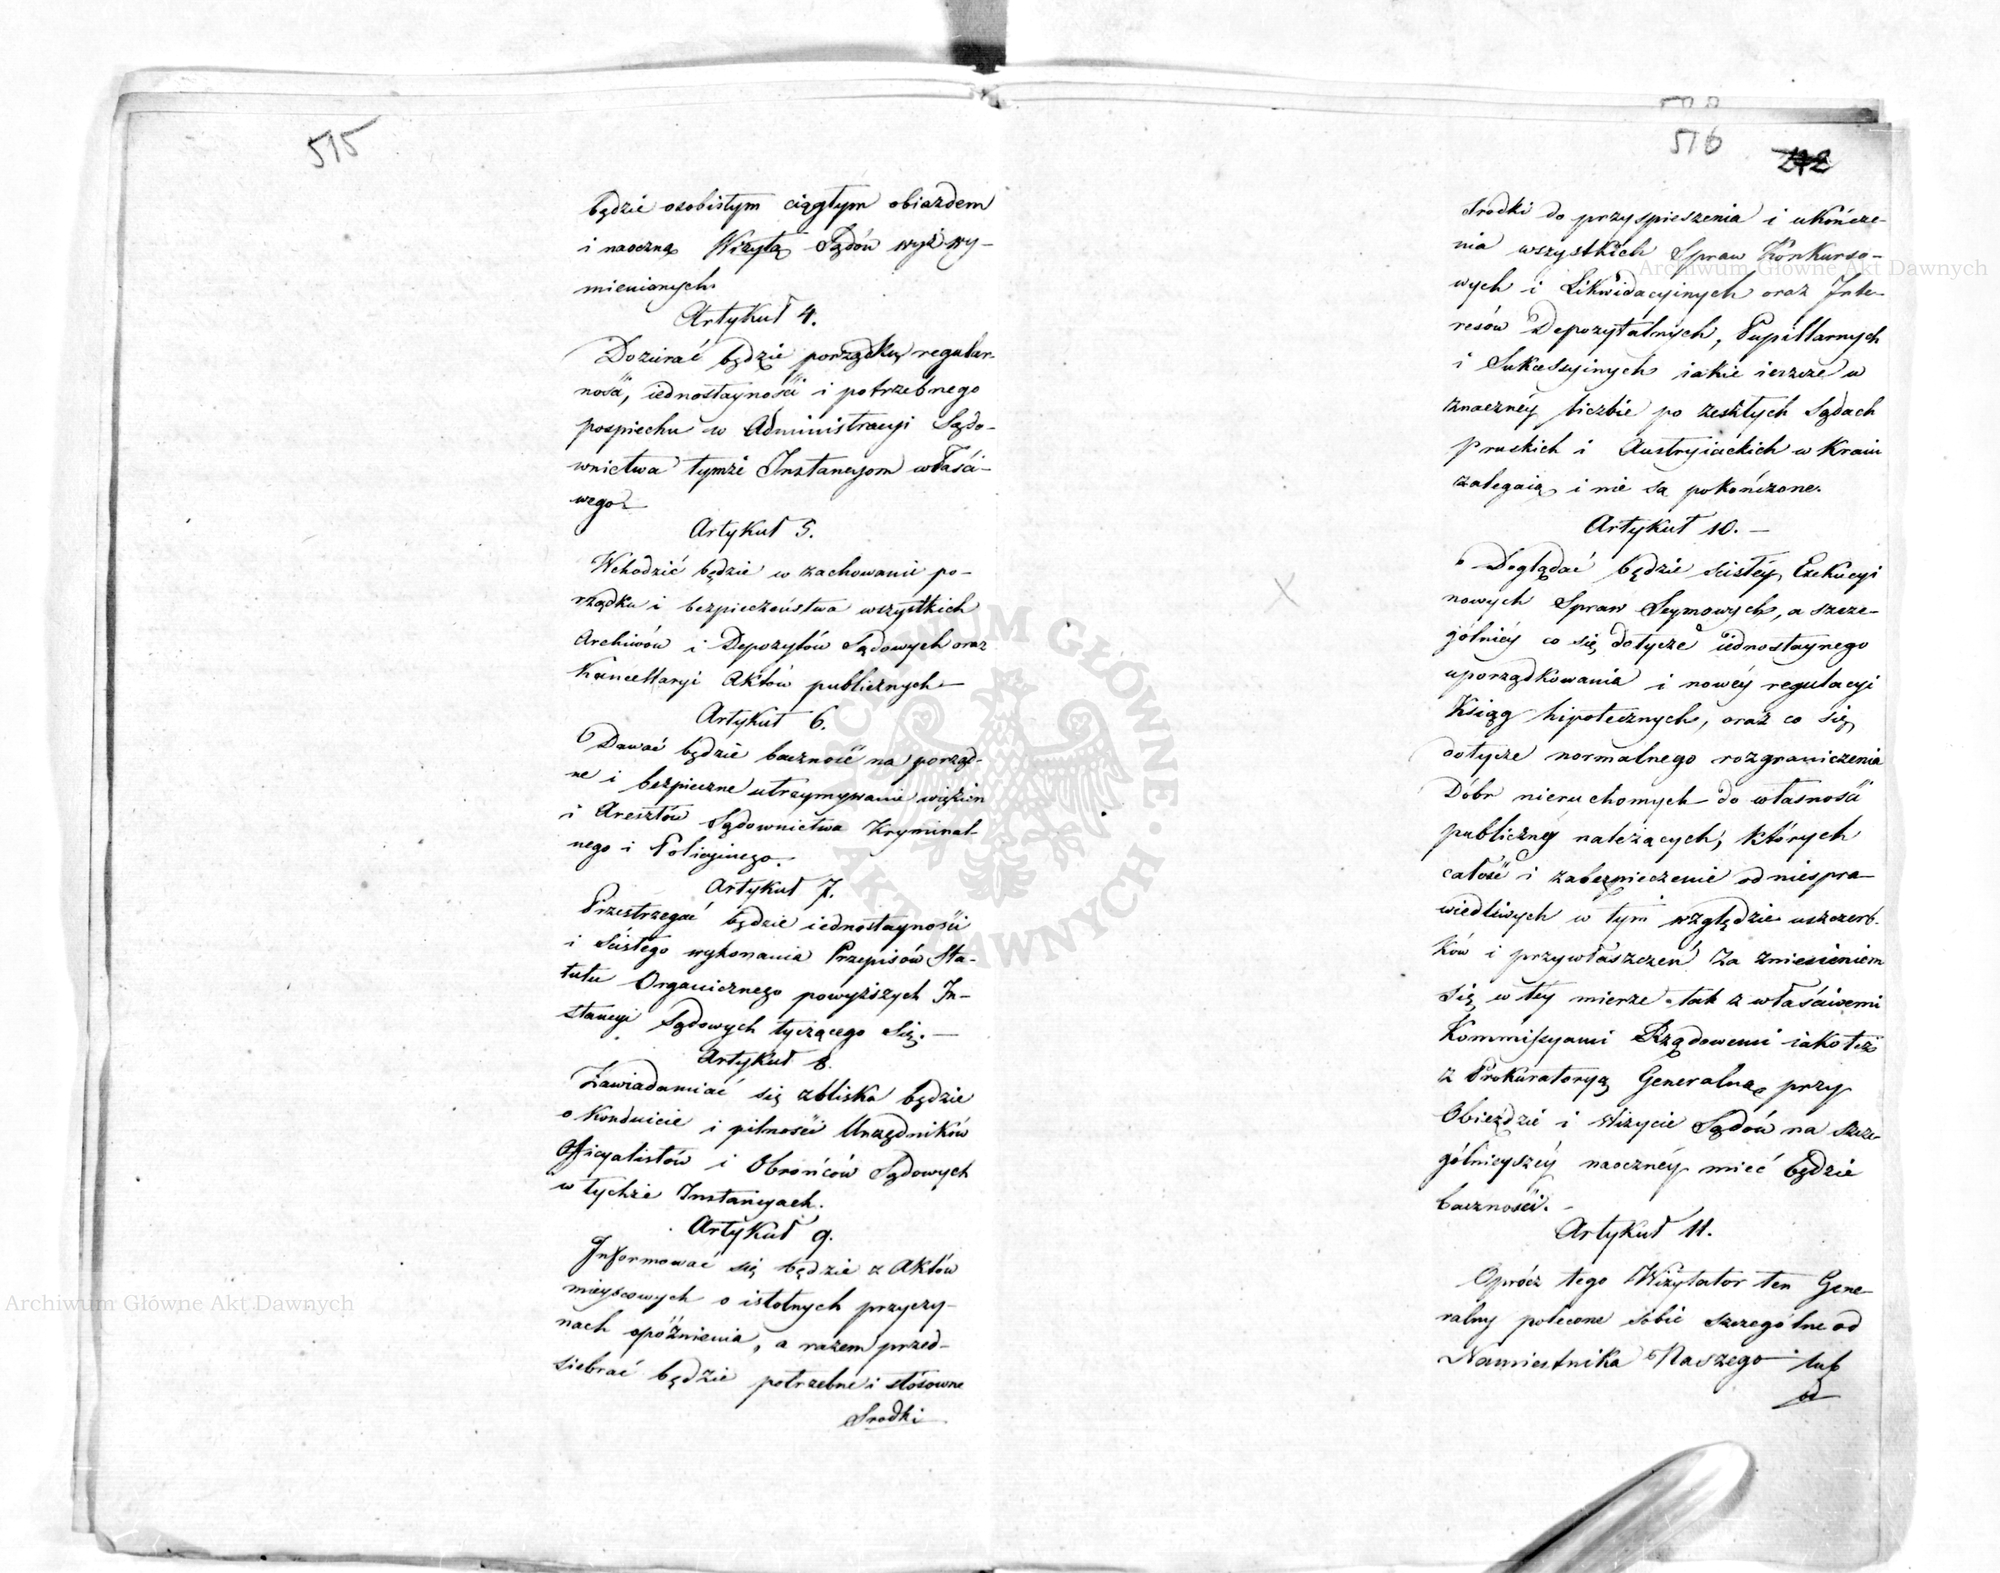 515
będzie osobistym ciągłym obiazdem
i naoczną Wizytą Sądów wyż wy-
mienionych.
Artykuł 4.
Dozierać będzie porządku, regular-
ności, iednostayności i potrzebnego
pospiechu w Administracyi Sądo-
wnictwa tymże Instancyom właści-
wego
Artykuł 5.
Wchodzić będzie w zachowanie po-
rządku i bezpieczeństwa wszystkich
Archiwów i Depozytów Sądowych oraz
Kancellaryi Aktów publicznych
Artykuł 6.
Dawać będzie baczność na porząd-
ne i bezpieczne utrzymywanie więzien
i Aresztów Sądownictwa Kryminal-
nego i Policyinego.
Artykuł 7.
Przestrzegać będzie iednostayności
i ścisłego wykonania Przepisów Sta-
tutu Organicznego powyższych In-
stancyi Sądowych tyczącego się.
Artykuł 8.
Zawiadamiać się zbliska będzie
o Konduicie i pilności Urzędników
Officyalistów i Obrońców Sądowych
w tychże Instancyach.
Artykuł 9.
Informować się będzie z Aktów
mieyscowych o istotnych przyczy-
nach opóźnienia, a razem przed-
siebrać będzie potrzebne i stosowne
Srodki
516
212
srodki do przyspieszenia i ukończe-
nia wszystkich Spraw Konkurso-
wych i Likwidacyinych oraz Inte-
resów Depozytalnych, Pupillarnych
i Sukcessyinych iakie ieszcze w
znaczney liczbie po zeszłych Sądach
Pruskich i Austryiackich w Kraiu
zalegaią i nie są pokończone.
Artykuł 10.
Doglądać będzie scisłey Exekucyi
nowych Spraw Seymowych, a szcze-
gólniey co się dotycze iednostaynego
uporządkowania i nowey regulacyi
Ksiąg hipotecznych, oraz co się
dotycze normalnego rozgraniczenia
Dóbr nieruchomych do własności
publiczney należących, których
całość i zabezpieczenie od niespra-
wiedliwych w tym względzie uszczerb-
ków i przywłaszczeń za zniesieniem
się w tey mierze tak z właściwemi
Kommissyami Rządowemi iako też
z Prokuratoryą Generalną przy
Obieździe i Wizycie Sądów na szcze-
gólnieyszéy naoczney mieć będzie
baczności.
Artykuł 11.
Oprócz tego Wizytator ten Gene-
ralny polecone sobie szczególne od
Namiestnika Naszego lub
od
Archiwum Główne Akt Dawnych
Archiwum Główne Akt Dawnych
ARCHIWUM GŁÓWNE AKT DAWNYCH